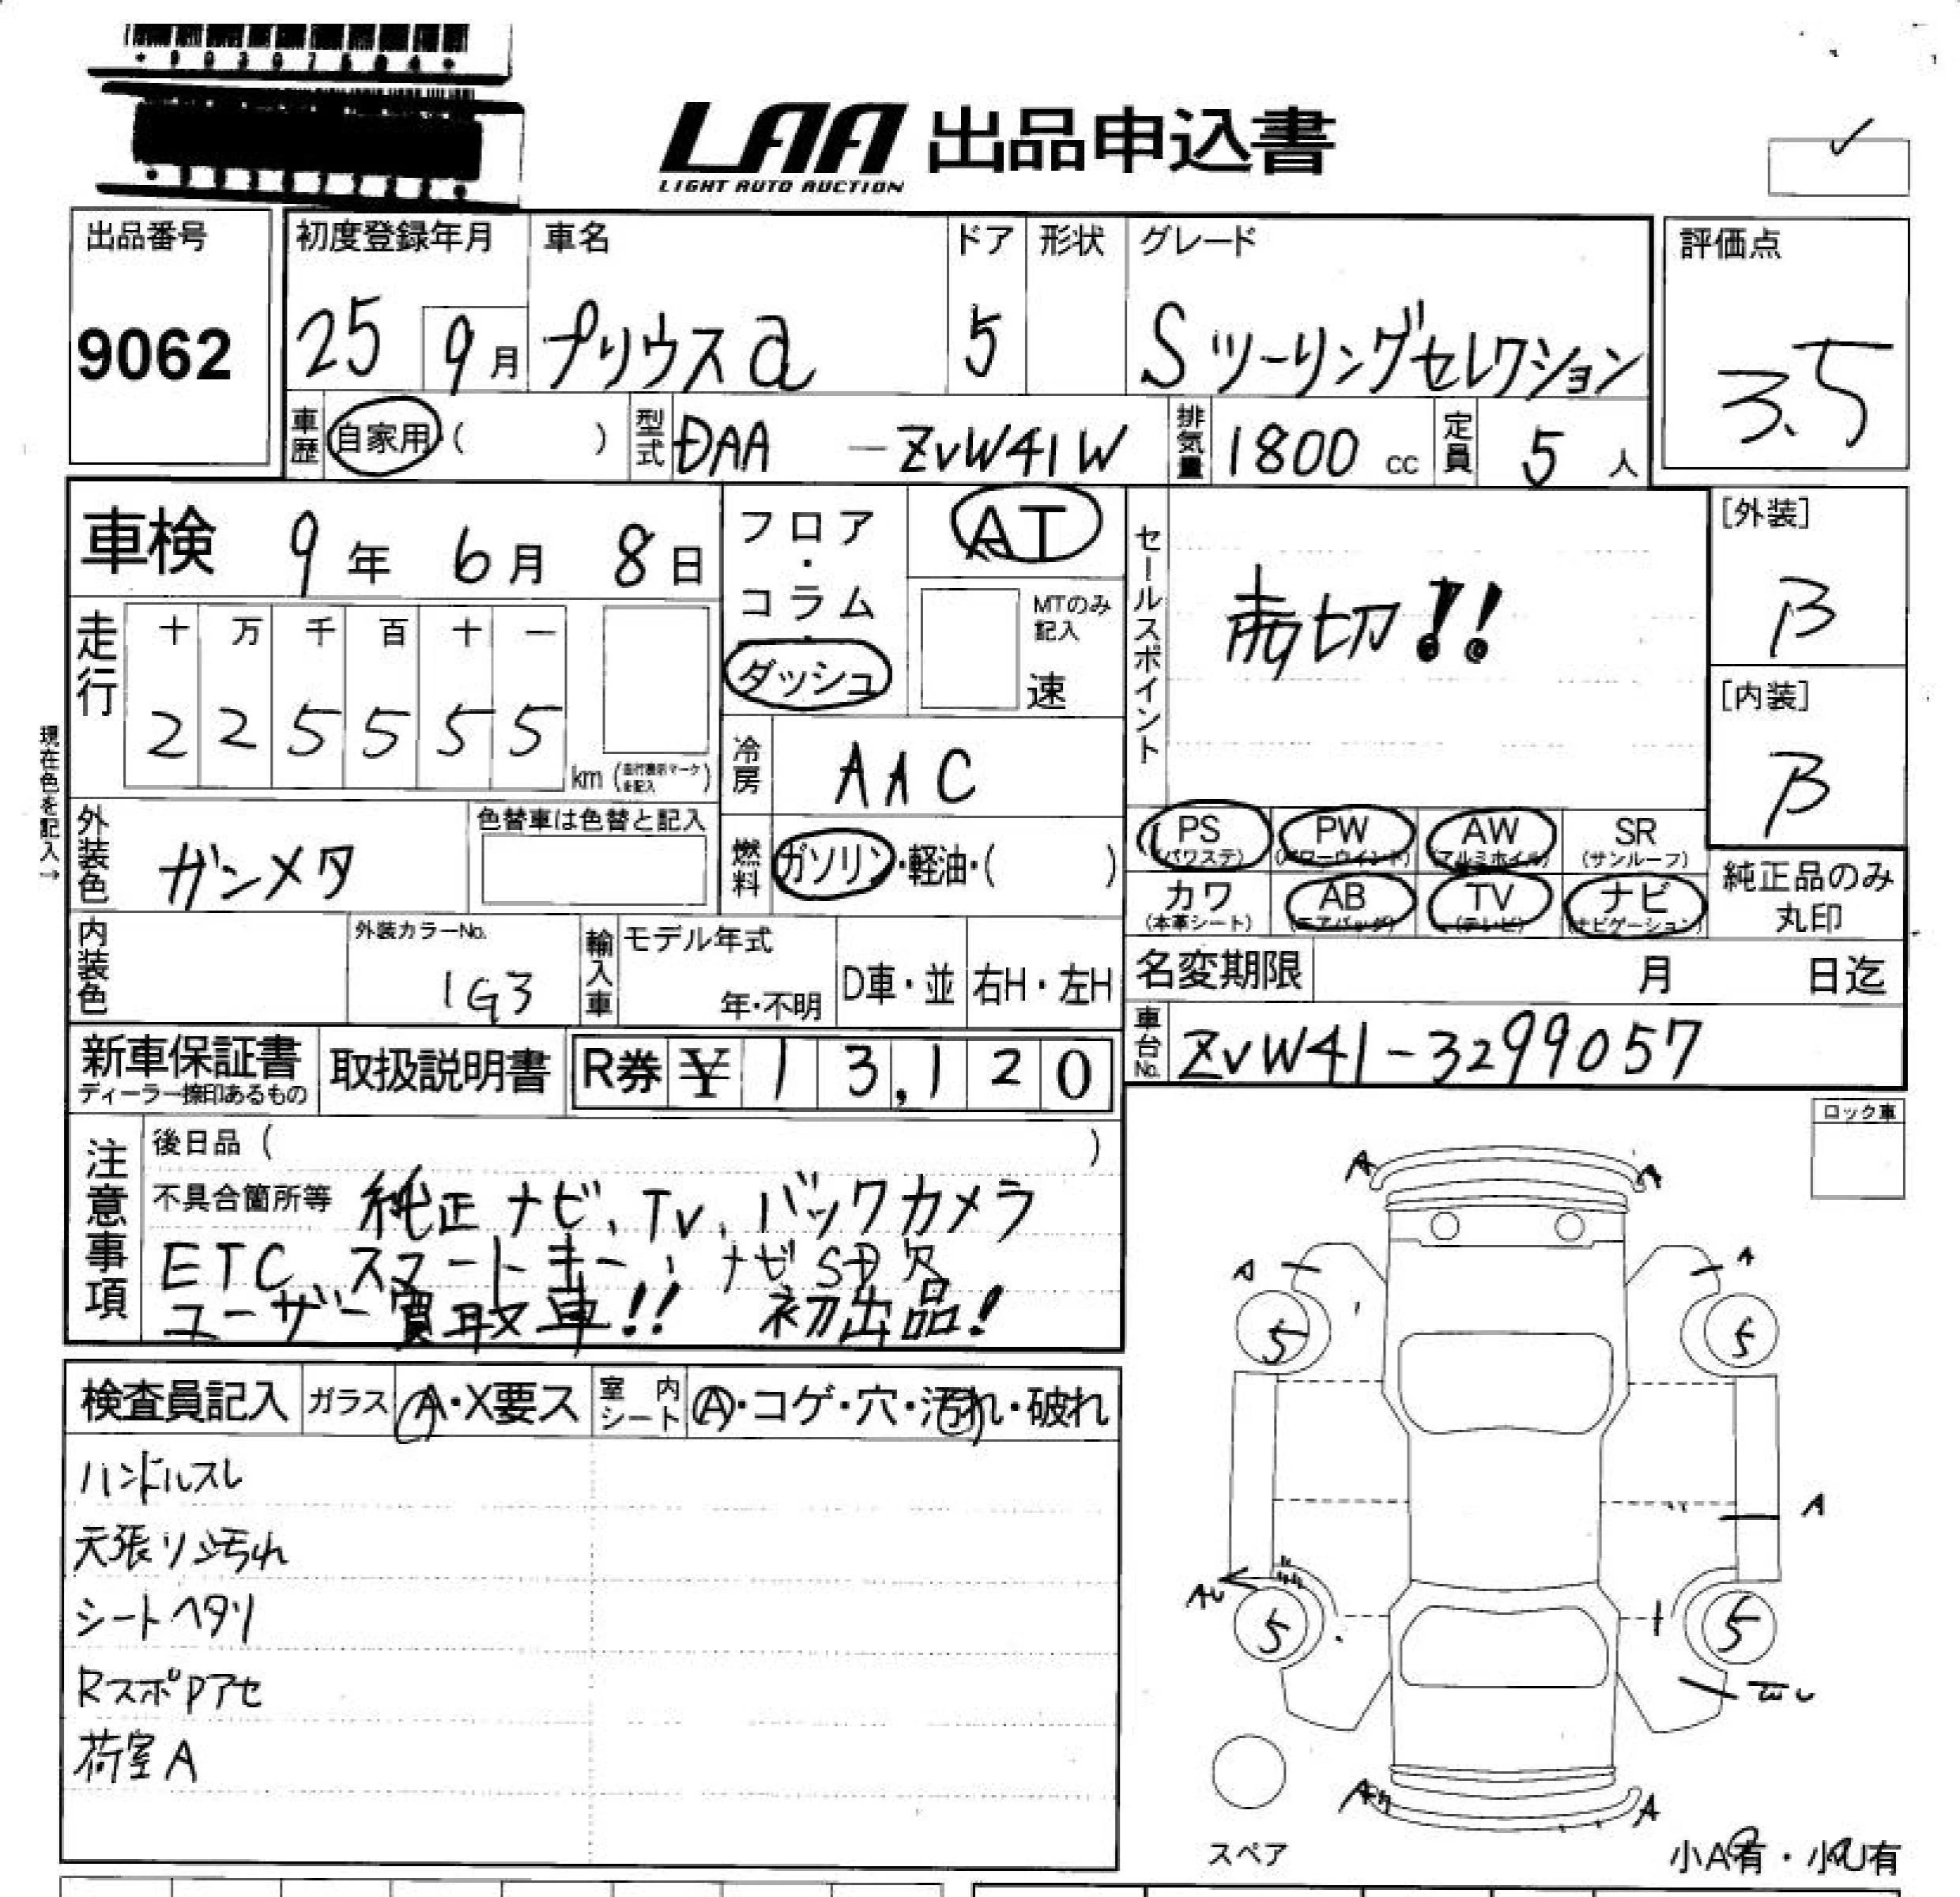 LAA 出品申込書
LIGHT AUTO AUCTION
出品番号
9062
初度登録年月 車名 ドア 形状 グレード
25 9月 プリウスα 5 Sツーリングセレクション
評価点
3.5
車歴 自家用 ( ) 型式 DAA - ZVW41W 排気量 1800 cc 定員 5 人
車検 9年 6月 8日
フロア・コラム・ダッシュ
AT
MTのみ記入
速
セールスポイント
売切!!
[外装]
B
[内装]
B
走行 十 万 千 百 十 一
2 2 5 5 5 5 km (走行表示マークを記入)
現在色を記入→
冷房 AAC
外装色 ガンメタ
色替車は色替と記入
燃料 ガソリン・軽油・( )
PS (パワステ) PW (パワーウインド) AW (アルミホイル) SR (サンルーフ)
カワ (本革シート) AB (エアバッグ) TV (テレビ) ナビ (ナビゲーション)
純正品のみ丸印
内装色
外装カラーNo.
1G3
輸入車 モデル年式
年・不明 D車・並 右H・左H
名変期限 月 日迄
車台No. ZVW41-3299057
新車保証書 取扱説明書 R券 ¥ 13,120
ディーラー捺印あるもの
注意事項
後日品 ( )
不具合箇所等 純正ナビ、TV、バックカメラ
ETC、スマートキー、ナビSD欠
ユーザー買取車!! 初出品!
ロック車
検査員記入 ガラス A・X要ス 室内シート A・コゲ・穴・汚れ・破れ
ハンドルスレ
天張リシ汚れ
シートヘタリ
RスポPアセ
荷室A
A A
A A
5 5
A
5 5
A
スペア
小A有・小U有